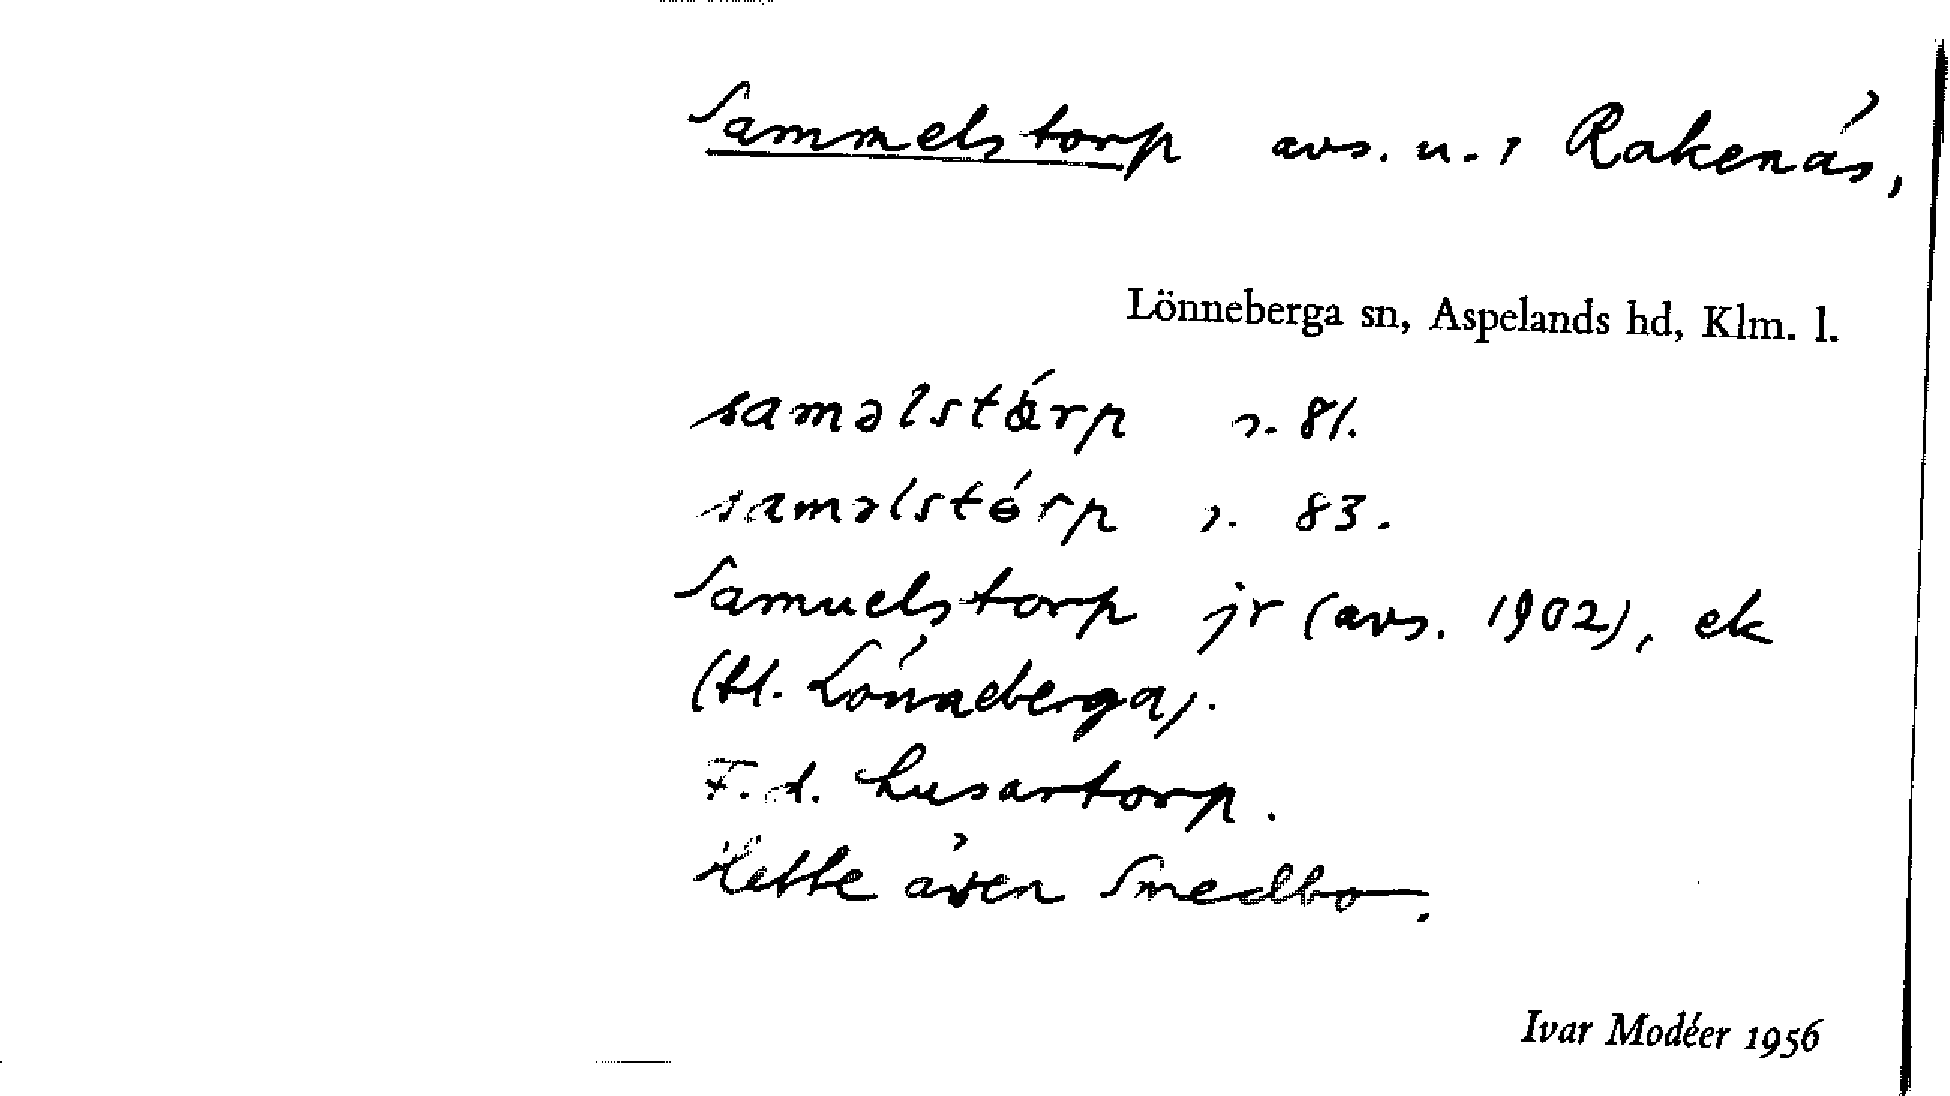 Sammelstorp avs. u. 1 Rakenäs,
Lönneberga sn, Aspelands hd, Klm. l.
saməlstȯ́rp s. 81.
saməlstɵ́rp s. 83.
Samuelstorp jr (avs. 1902), ek
(tl. Lönneberga).
F.d. husartorp.
Hette även Smedbo.
Ivar Modéer 1956